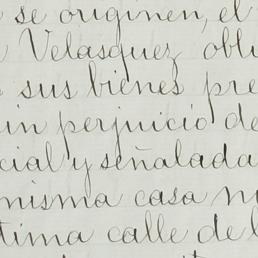 se originen, el
Velasquez obli
sus bienes pre
in perjuicio de
cial y señalada
misma casa nu
tima calle de l